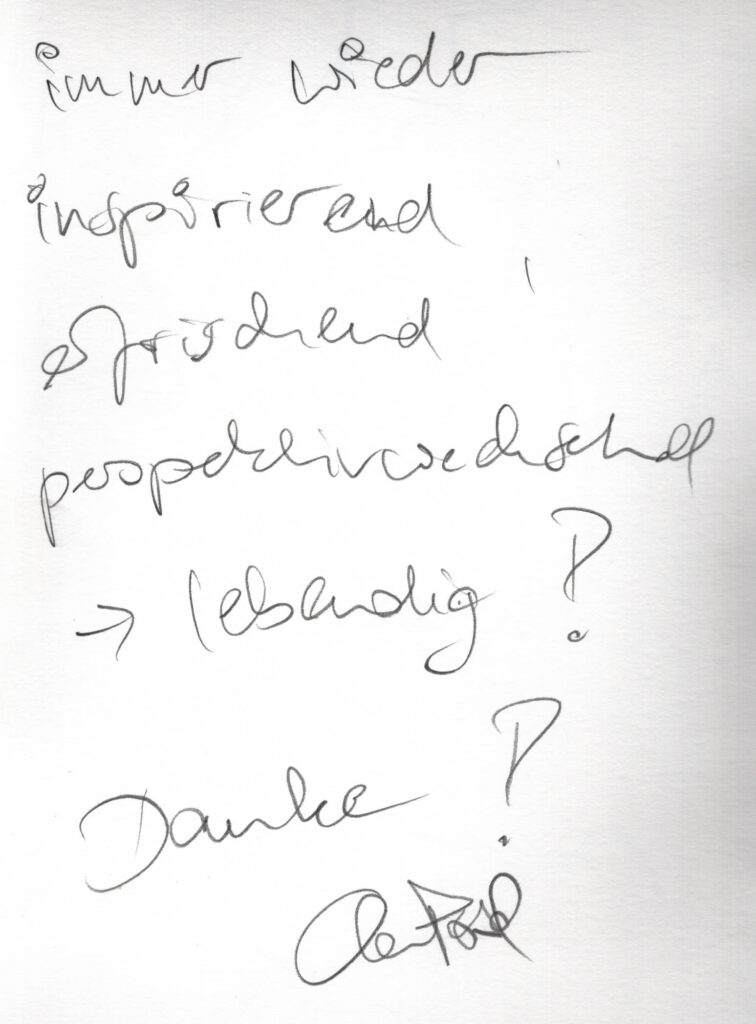 immer wieder
inspirierend
erfrischend
perspektivwechselnd
→ lebendig !
Danke !